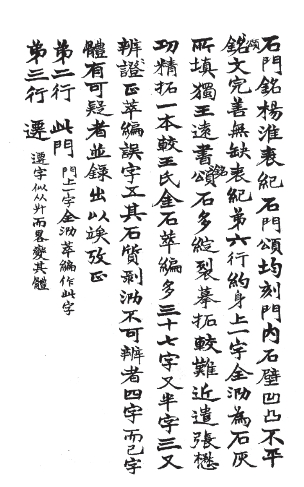 石門銘楊淮表紀石門頌均刻門內石壁凹凸不平
頌銘文完善無缺表紀第六行約身上一字全泐為石灰
所填獨王遠書銘頌石多綻裂摹拓較難近遣張懋
功精拓一本較王氏金石萃編多三十七字又半字三又
辨證正萃編誤字五其石質剥泐不可辨者四字而已字
體有可疑者並錄出以竢攷正
第二行 此門 門上字全泐萃編作此字
第三行 遷 遷字似从廾而畧變其體